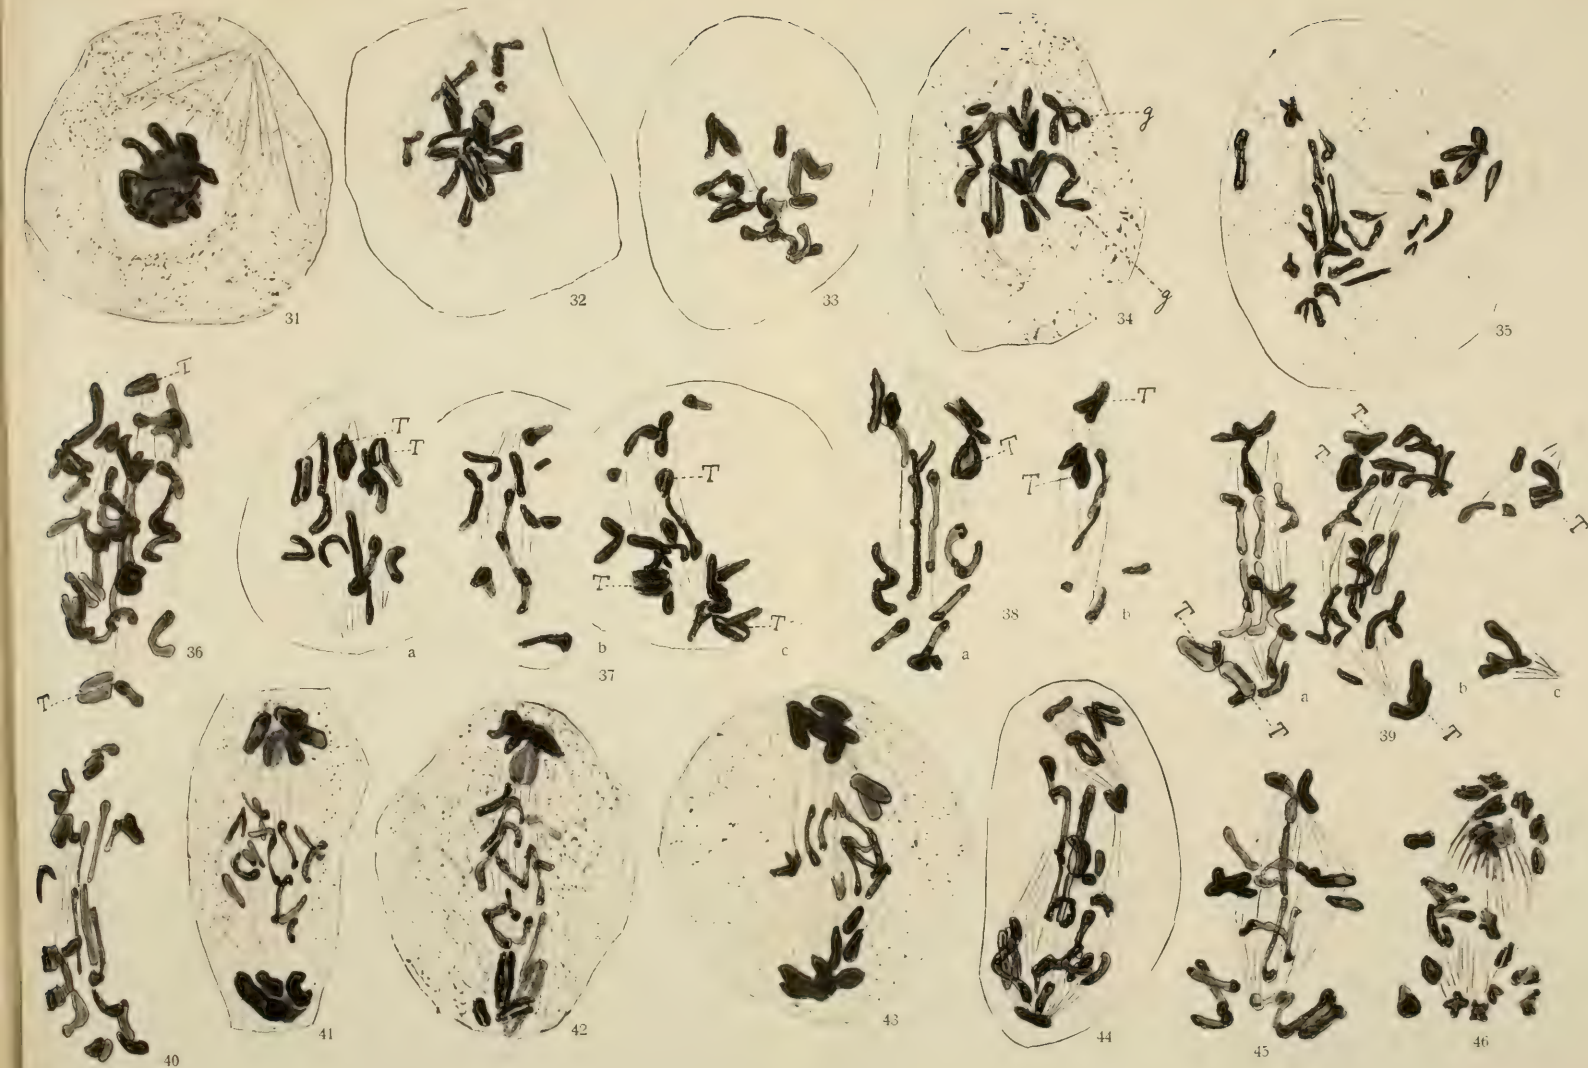 31
32
33
g
g
34
35
T
T
36
T
T
a
b
T
T
T
c
37
T
a
38
T
T
b
T
T
a
T
T
T
b
T
T
c
39
40
41
42
43
44
45
46